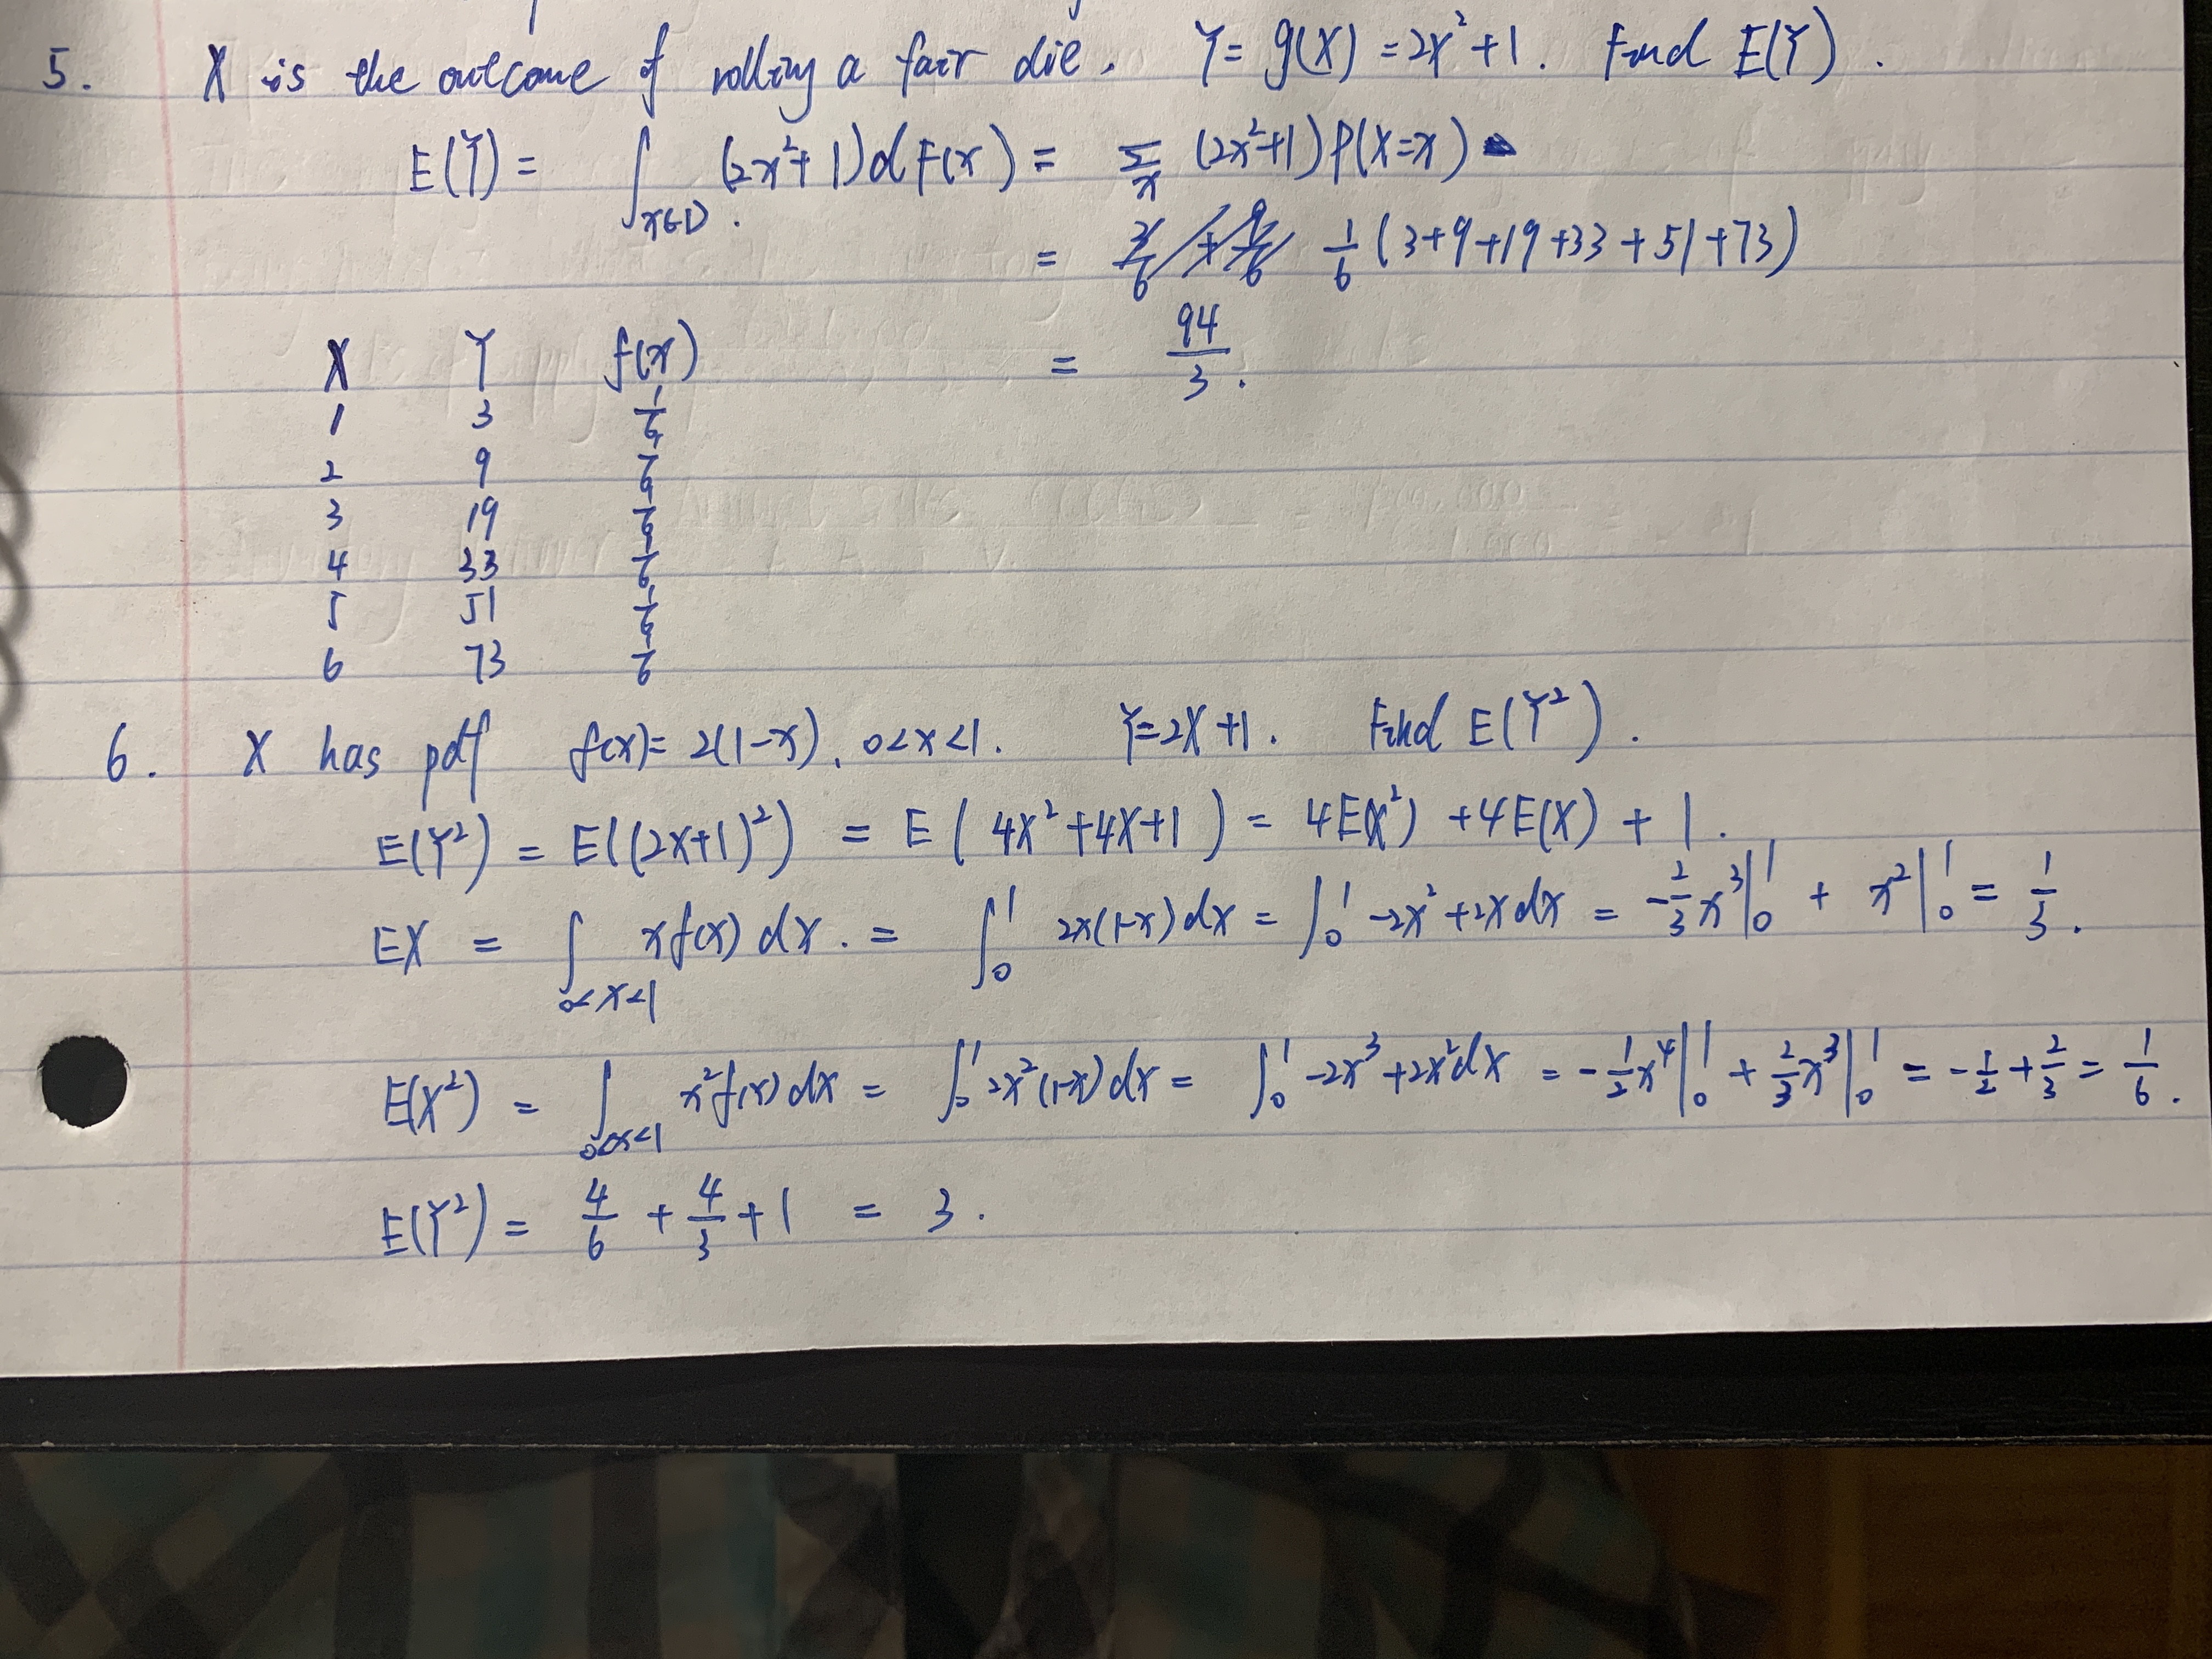 5. X is the outcome of rolling a fair die. Y = g(X) = 2x²+1. Find E(Y).
E(Y) = ∫_{x∈D} (2x²+1)dF(x) = Σ_x (2x²+1)P(X=x)
= 1/6 (3+9+19+33+51+73)
= 94/3.
X Y f(x)
1 3 1/6
2 9 1/6
3 19 1/6
4 33 1/6
5 51 1/6
6 73 1/6
6. X has pdf f(x) = 2(1-x), 0<x<1. Y=2X+1. Find E(Y²).
E(Y²) = E((2X+1)²) = E(4X²+4X+1) = 4E(X²) + 4E(X) + 1.
EX = ∫_{0<x<1} xf(x) dx. = ∫₀¹ 2x(1-x)dx = ∫₀¹ -2x²+2x dx = -2/3 x³|₀¹ + x²|₀¹ = 1/3.
E(X²) = ∫_{0<x<1} x²f(x)dx = ∫₀¹ 2x²(1-x)dx = ∫₀¹ -2x³+2x²dx = -1/2 x⁴|₀¹ + 2/3 x³|₀¹ = -1/2 + 2/3 = 1/6.
E(Y²) = 4/6 + 4/3 + 1 = 3.